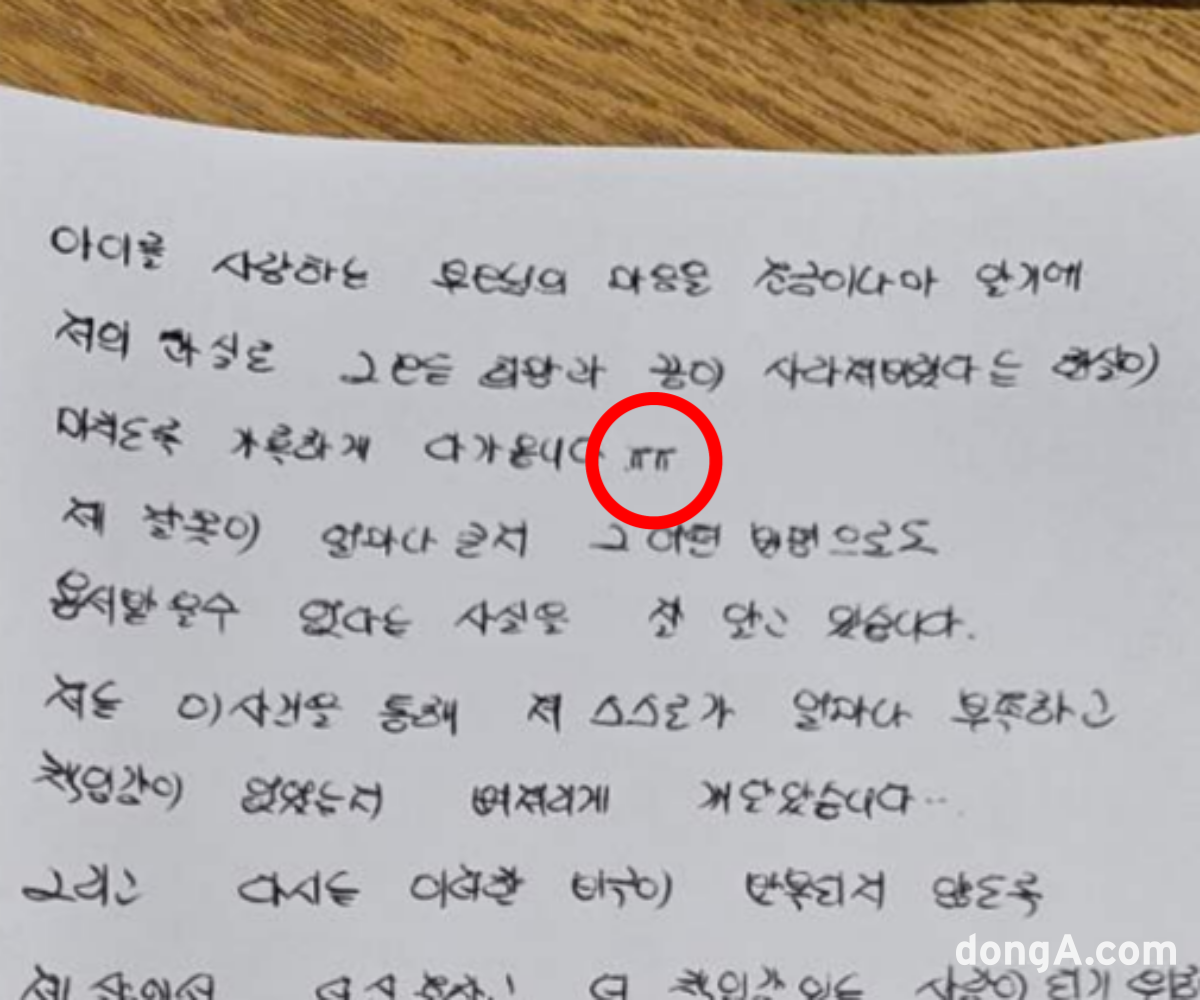 아이를 사랑하는 부모님의 마음을 조금이나마 알기에
저의 과실로 그 모든 희망과 꿈이 사라져버렸다는 현실이
미칙도록 가혹하게 다가옵니다 ㅠㅠ
제 잘못이 얼마나 큰지 그 어떤 방법으로도
용서받을수 없다는 사실을 잘 알고 있습니다.
저는 이 사건을 통해 저 스스로가 얼마나 부족하고
책임감이 없었는지 뼈저리게 깨달았습니다..
그리고 다시는 이러한 비극이 반복되지 않도록
제 책임감있는 사람이 되기 위해
dongA.com